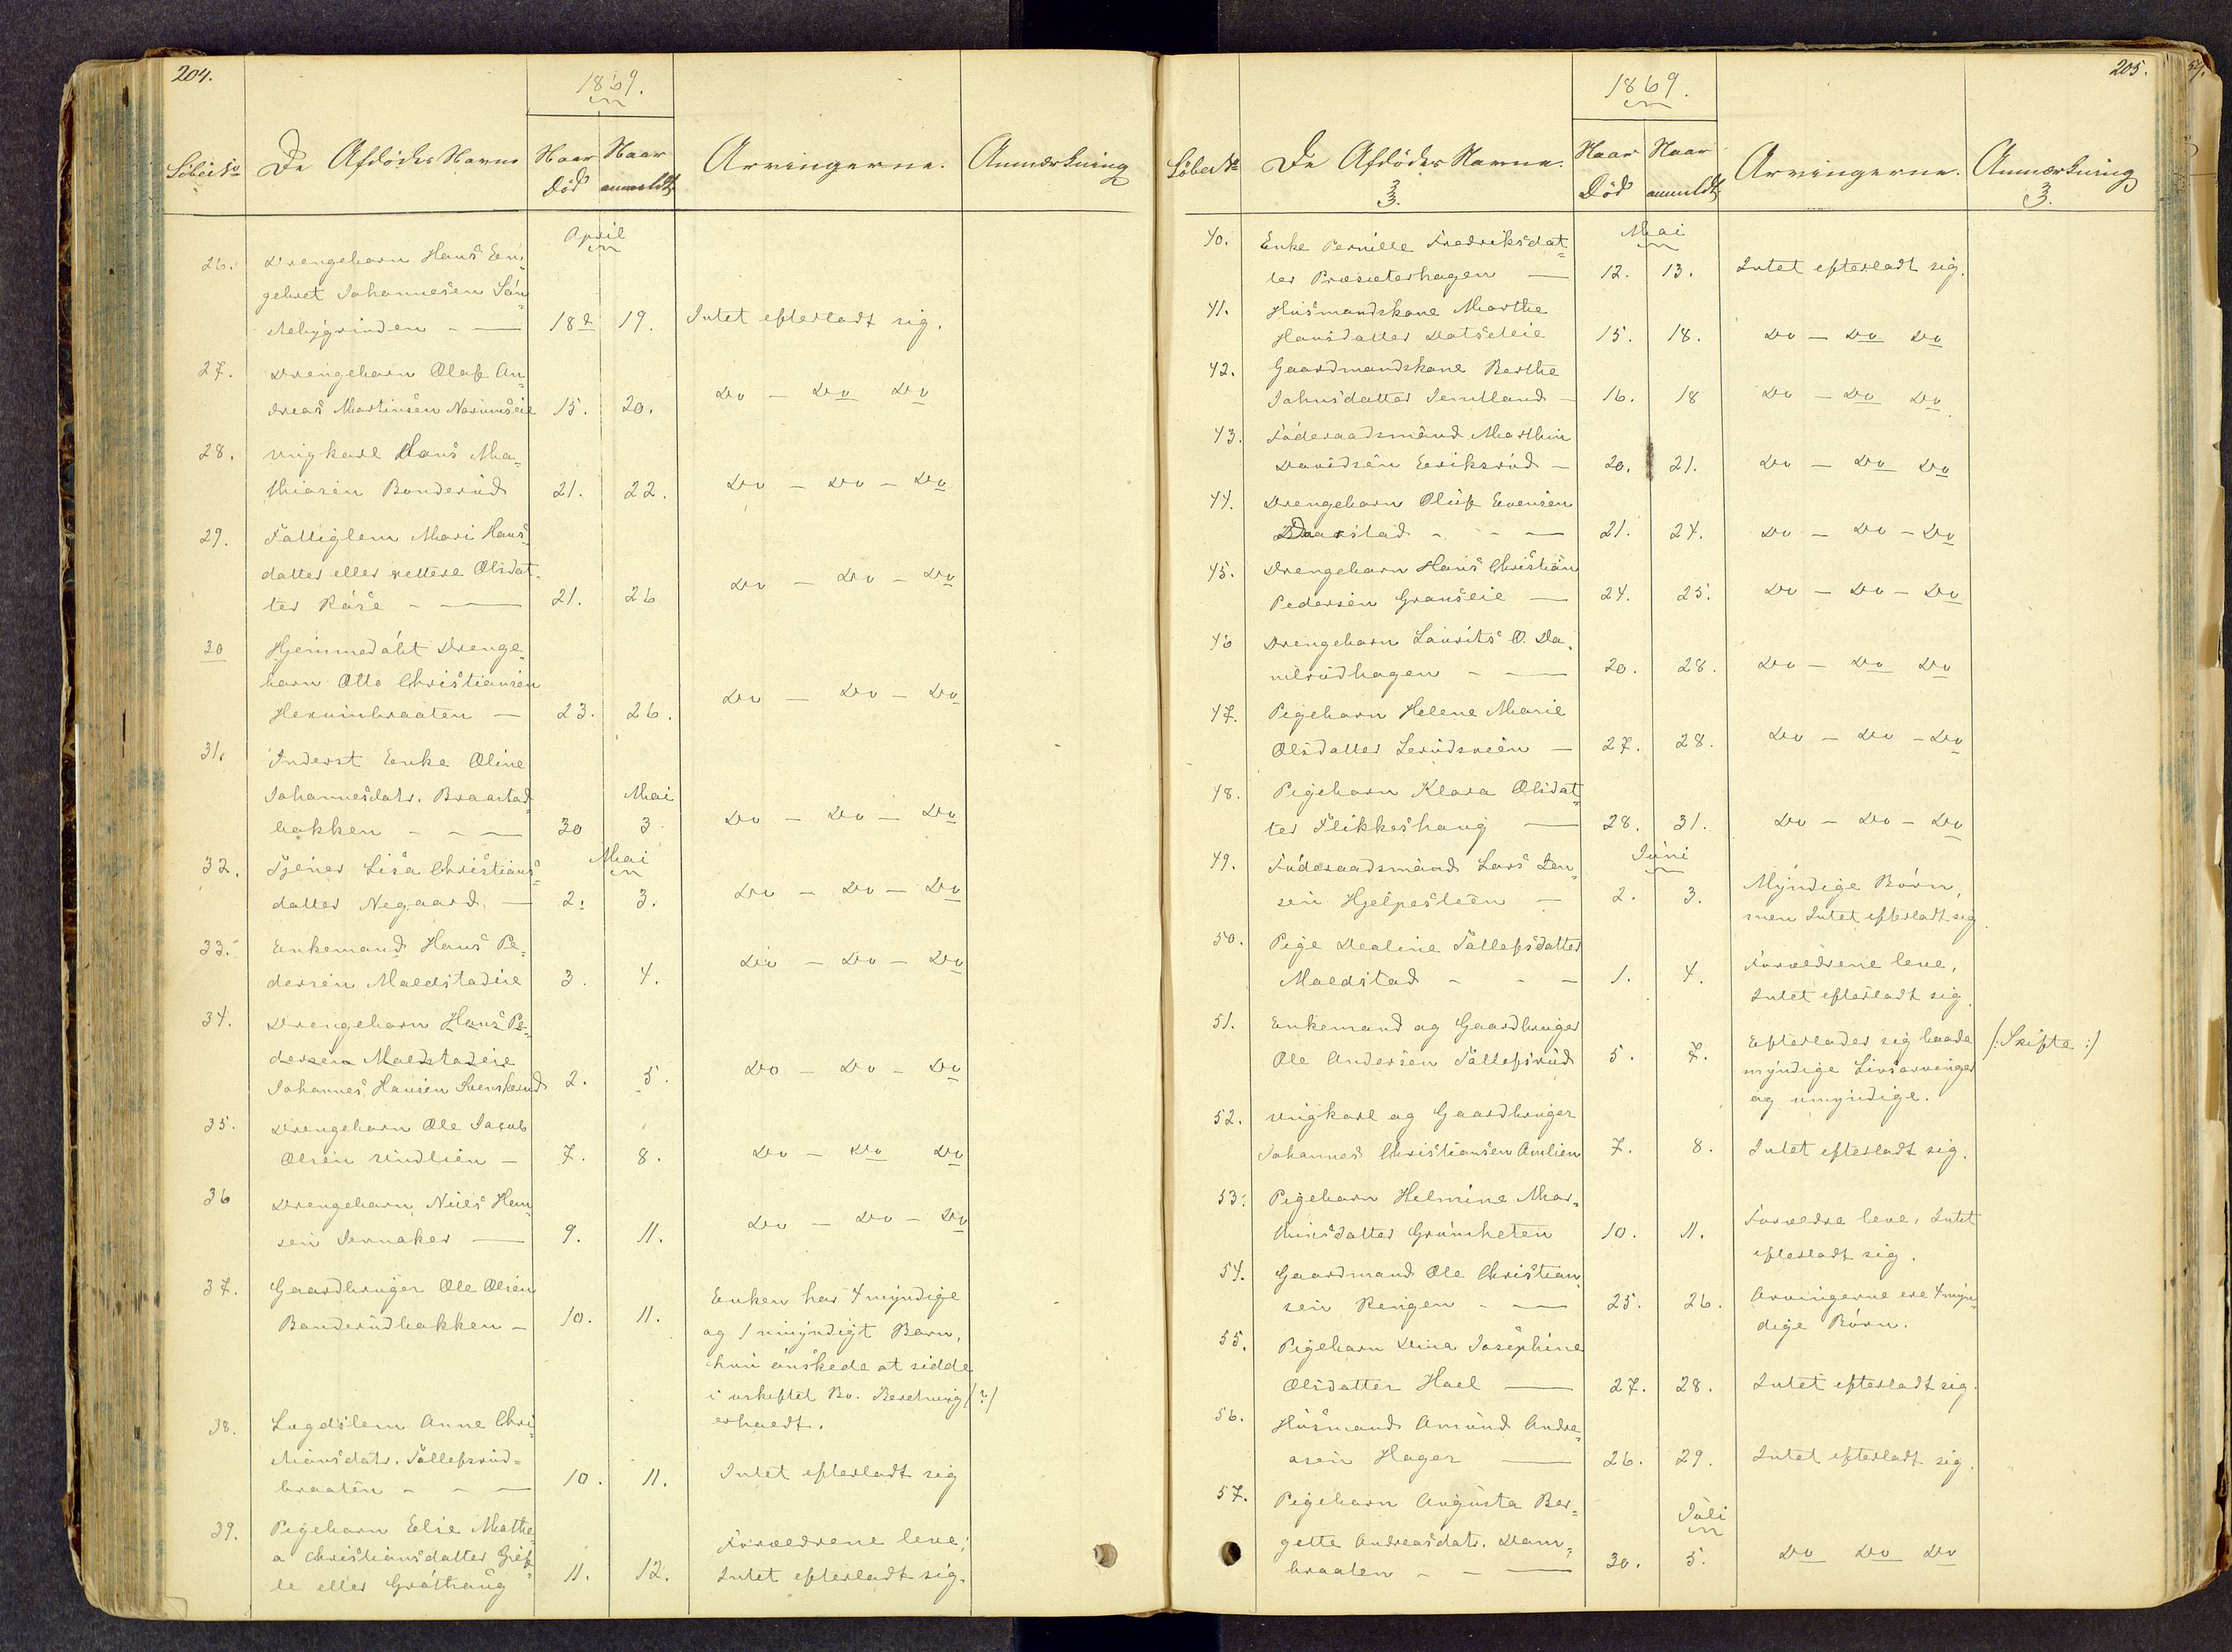 204.
1869.
Löbe No De Afdödes Navne Naar Död Naar anmeldt Arvingerne. Anmærkning
April
26. Drengebarn Hans En-
gebret Johannesen Søn
Aabygrinden - — 18de 19. Intet efterladt sig.
27. Drengebarn Olaf An-
dreas Martinsen Narumseie 15. 20. Do - Do Do
28. Ungkarl Hans Ma-
thiasen Bonderud 21. 22. Do - Do - Do
29. Fattiglem Mari Hans-
datter eller rettere Olsdat-
ter Røise - — 21. 26 Do - Do - Do
30 Hjemmedøbt Drenge-
barn Otto Christiansen
Hexumbraaten — 23. 26. Do - Do - Do
31. Inderst Enke Oline
Johannesdatr. Braastad Mai
bakken - - — 30 3. Do - Do - Do
Mai
32. Tjener Lisa Christians-
datter Negaard. — 2. 3. Do - Do - Do
33. Enkemand Hans Pe-
dersen Maelstadeie 3. 4. Do - Do - Do
34. Drengebarn Hans Pe-
dersen Maelstadeie
Johannes Hansen Svenskerud 2. 5. Do - Do - Do
35. Drengebarn Ole Jacob
Olsen Rindlien — 7. 8. Do - Do Do
36 Drengebarn Niels Han-
sen Sernaker — 9. 11. Do - Do - Do
37. Gaardbruger Ole Olsen
Banderudbakken — 10. 11. Enken har 4 myndige
og 1 umyndigt Barn,
hun ønskede at sidde
i uskiftet Bo. Beretning (?)
erhvedt.
38. Lægdslem Anne Chri-
stiansdatr. Tollefsrud-
braaten - - — 10. 11. Intet efterladt sig
39. Pigebarn Elie Mathe-
a Christiansdatter Gref-
le eller Grøthaug 11. 12. Forældrene leve;
Intet efterladt sig.
205.
57.
1869.
Löbe No De Afdödes Navne. Naar Död Naar anmeldt Arvingerne. Anmærkning
Mai
40. Enke Pernille Fredriksdat-
ter Præsæterhagen — 12. 13. Intet efterladt sig.
41. Husmandskone Marthe
Hansdatter Dotseteie 15. 18. Do - Do Do
42. Gaardmandskone Berthe
Johnsdatter Semtland — 16. 18 Do - Do Do
43. Föderaadsmand Marthin
Davidsen Eeriksrud — 20. 21. Do - Do Do
44. Drengebarn Oluf Evensen
Daarstad - - — 21. 24. Do - Do - Do
45. Drengebarn Hans Christian
Pedersen Granseie — 24. 25. Do - Do - Do
46 Drengebarn Laurits O. Da-
nilrudhagen - — 20. 28. Do - Do Do
47. Pigebarn Helene Marie
Olsdatter Lerudsveien — 27. 28. Do - Do - Do
48. Pigebarn Klara Olsdat-
ter Flikkeshaug — 28. 31. Do - Do - Do
Juni
49. Föderaadsmand Lars Lar-
sen Hjelpesteen — 2. 3. Myndige Börn,
men Intet efterladt sig.
50. Pige Dealine Tollefsdatter
Maelstad - - — 1. 4. Forældrene leve,
Intet efterladt sig.
51. Enkemand og Gaardbruger
Ole Andersen Tollefsrud 5. 7. Efterlader sig baade
myndige Livsarvinger
og umyndige. /: Skifte :/
52. Ungkarl og Gaardbruger
Johannes Christiansen Amlien 7. 8. Intet efterladt sig.
53. Pigebarn Helmine Mar-
thinsdatter Grønsheten 10. 11. Forældre leve, Intet
efterladt sig.
54. Gaardmand Ole Christian-
sen Rengen - — 25. 26. Arvingerne ere 4 myn-
dige Börn.
55. Pigebarn Dina Josephine
Olsdatter Hoel — 27. 28. Intet efterladt sig.
56. Husmand Amund Andre-
asen Hager — 26. 29. Intet efterladt sig.
57. Pigebarn Augusta Ber-
Juli
gette Andreasdatr. Dam-
braaten - - — 30. 5. Do Do Do